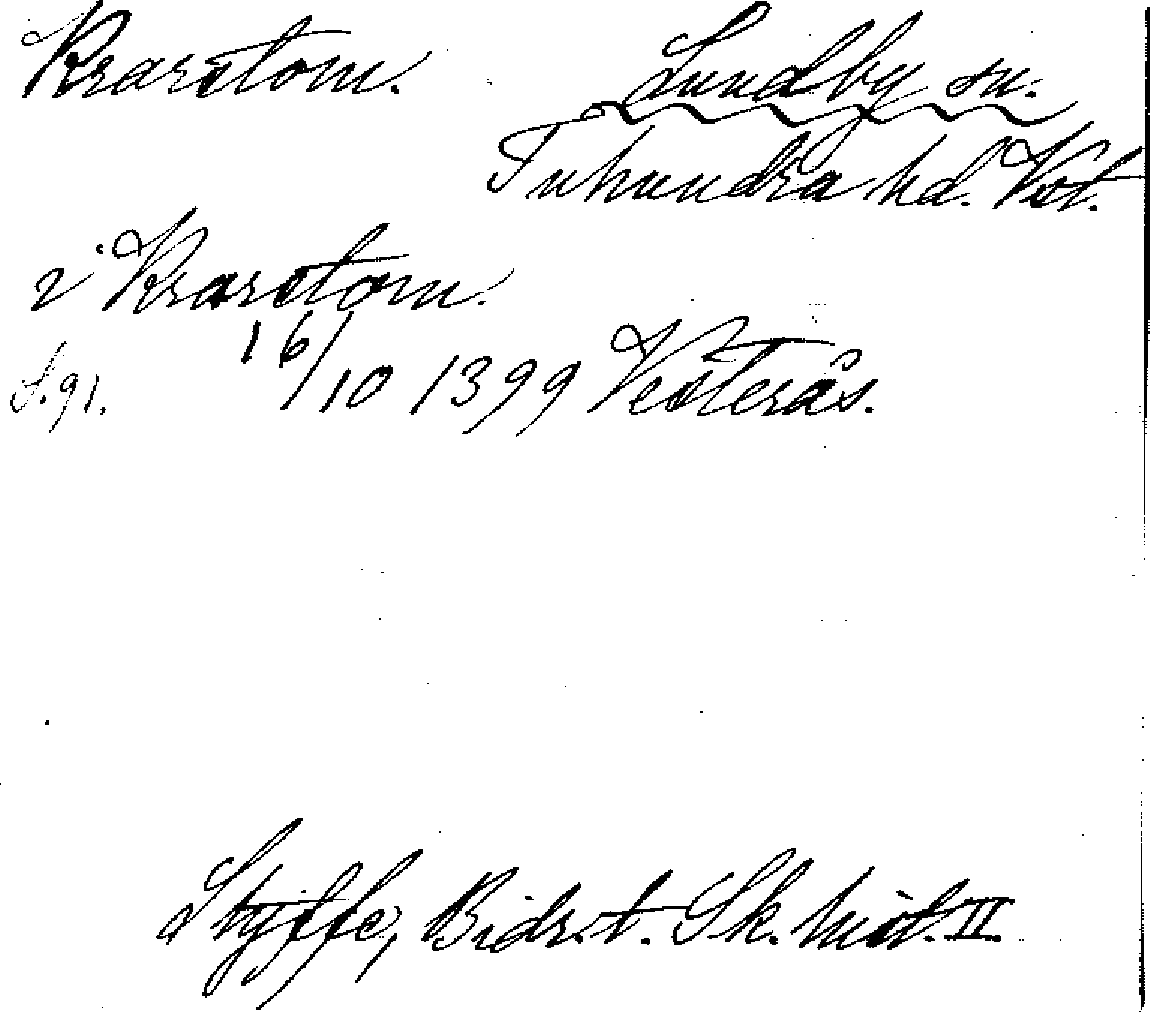 Krarstom. Lundby sn.
Tuhundra hd. Vst.
i Krarstom.
S. 91. 16/10 1399 Vesterås.
Styffe, Bidr. t. Sk. hist. II.